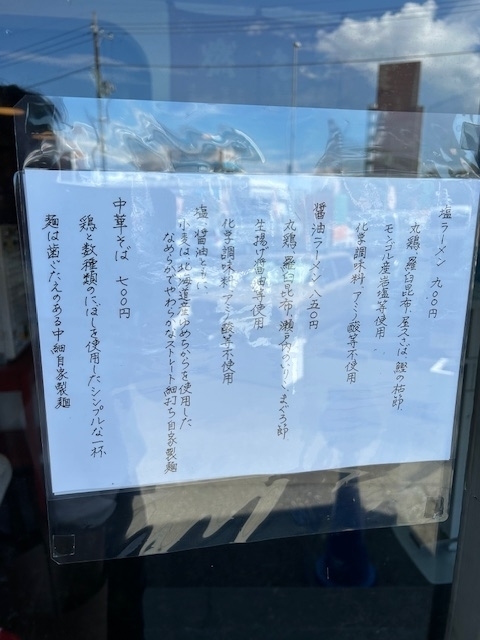 塩ラーメン 九〇〇円
丸鶏、羅臼昆布、屋久さば、鰹の枯節
モンゴル産岩塩等使用
化学調味料、アミノ酸等不使用
醤油ラーメン 八五〇円
丸鶏、羅臼昆布、瀬戸内イリコ、まぐろ節
生揚げ醤油等使用
化学調味料、アミノ酸等不使用
塩、醤油ともに、
小麦は北海道産ゆめちからを使用した
なめらかでやわらかなストレート細打ち自家製麺
中華そば 七〇〇円
鶏と数種類のにぼしを使用したシンプルな一杯
麺は歯ごたえのある中細自家製麺